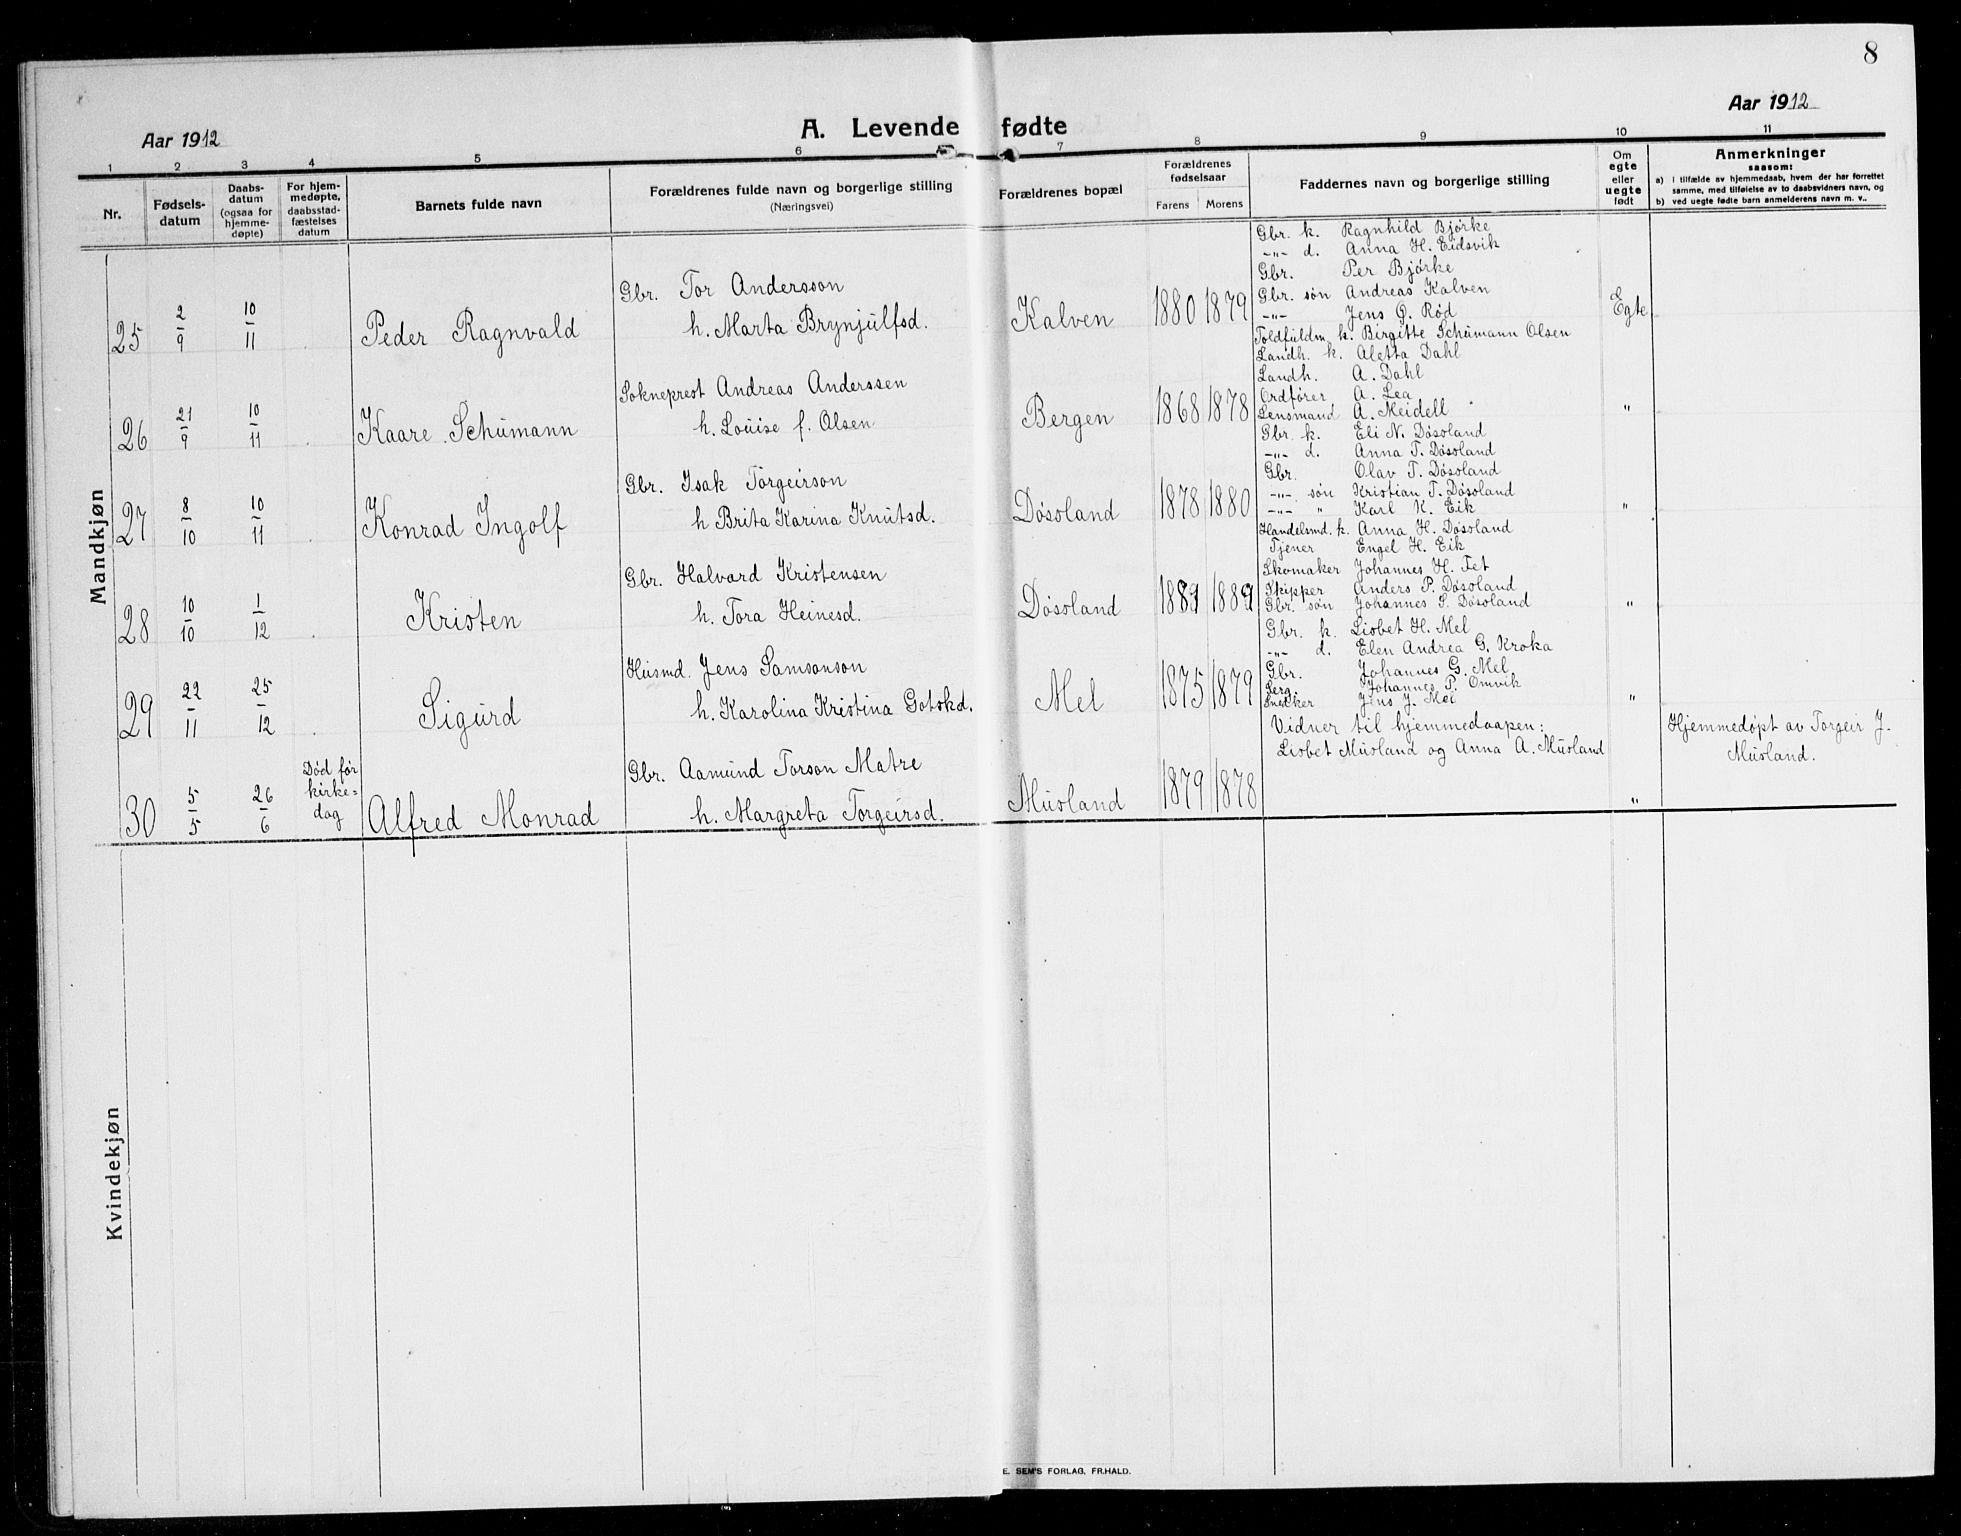 8
Aar 1912
A. Levende fødte
Aar 1912
1 2 3 4 5 6 7 8 9 10 11
Nr.
Fødsels-
datum
Daabs-
datum
(ogsaa for
hjemme-
døpte)
For hjem-
medøpte,
daabsstad-
fæstelses
datum
Barnets fulde navn
Forældrenes fulde navn og borgerlige stilling
(Næringsvei)
Forældrenes bopæl
Forældrenes
fødselsaar
Farens Morens
Faddernes navn og borgerlige stilling
Om
egte
eller
uegte
født
Anmerkninger
saasom:
a) i tilfælde av hjemmedaab, hvem der har forrettet
samme, med tilføielse av to daabsvidners navn, og
b) ved uegte fødte barn anmelderens navn m. v..
Mandkjøn
25 2/9 10/11 Peder Ragnvald
Gbr. Tor Andersson
h. Marta Brynjulfsd.
Kalven 1880 1879
Gbr. k. Ragnhild Bjørke
-"- d. Anna H. Eidsvik
Gbr. Per Bjørke
Gbr. søn Andreas Kalven
-"- Jens Q. Rød
Egte
26 21/9 10/11 Kaare Schumann
Sokneprest Andreas Anderssen
h. Louise f. Olsen
Bergen 1868 1878
Toldfuldm. k. Birgitte Schumann Olsen
Landh. k. Aletta Dahl
Landh. A. Dahl
Ordfører A. Lea
Lensmand A. Meidell
"
27 8/10 10/11 Konrad Ingolf
Gbr. Isak Torgeirson
h Brita Karina Knutsd.
Døsoland 1878 1880
Gbr. k. Eli N. Døsoland
-"- d. Anna T. Døsoland
Gbr. Olav T. Døsoland
-"- søn Kristian T. Døsoland
-"- " Karl K. Eik
"
28 10/10 1/12 Kristen
Gbr. Halvard Kristensen
h. Tora Heinesd.
Døsoland 1889 1889
Handelsmd. k. Anna H. Døsoland
Tjener Engel H. Eik
Skomaker Johannes H. Fet
Skipper Anders P. Døsoland
Gbr. søn Johannes S. Døsoland
"
29 22/11 25/12 Sigurd
Husmd. Jens Samsonson
h. Karolina Kristina Gotskd.
Mel 1875 1879
Gbr. k. Lisbet H. Mel
-"- d. Elen Andrea G. Kroka
Gbr. Johannes G. Mel
Serg. Johannes P. Omvik
Snedker Jens J. Mel
"
30 5/5 26/6
Død før
kirke=
dag
Alfred Monrad
Gbr. Aamund Torson Matre
h. Margreta Torgeirsd.
Musland 1879 1878
Vidner til hjemmedaapen:
Lisbet Musland og Anna A. Musland
"
Hjemmedøpt av Torgeir J.
Musland.
Kvindekjøn
E. SEM'S FORLAG, FR.HALD.